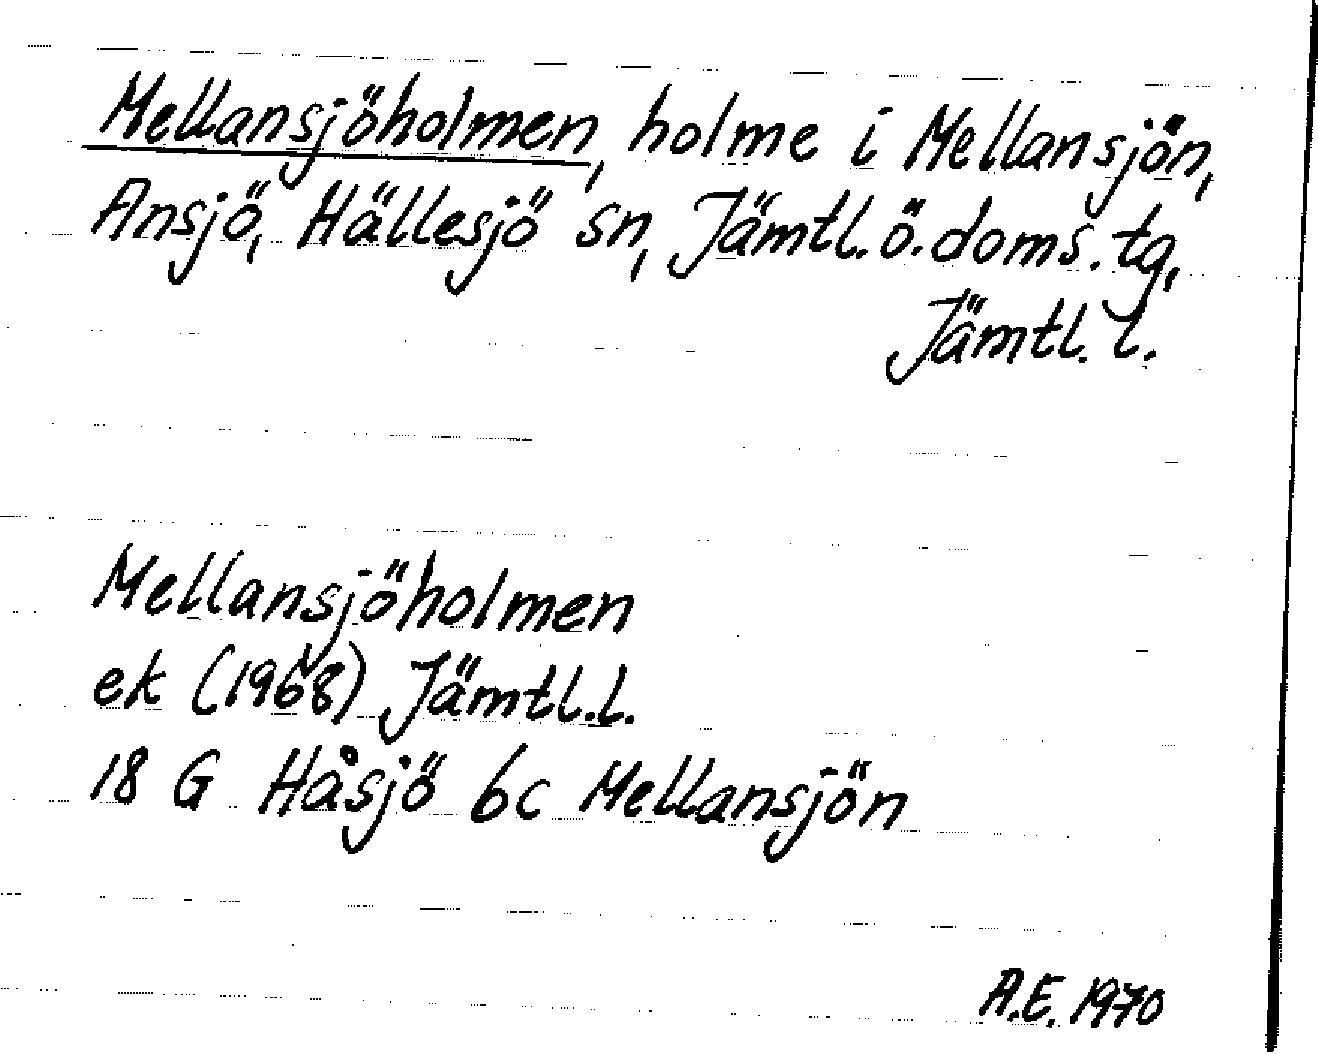 Mellansjöholmen, holme i Mellansjön,
Ansjö, Hällesjö sn, Jämtl. ö. doms. tg,
Jämtl. l.
Mellansjöholmen
ek (1968) Jämtl. l.
18 G Håsjö 6c Mellansjön
A.E. 1970